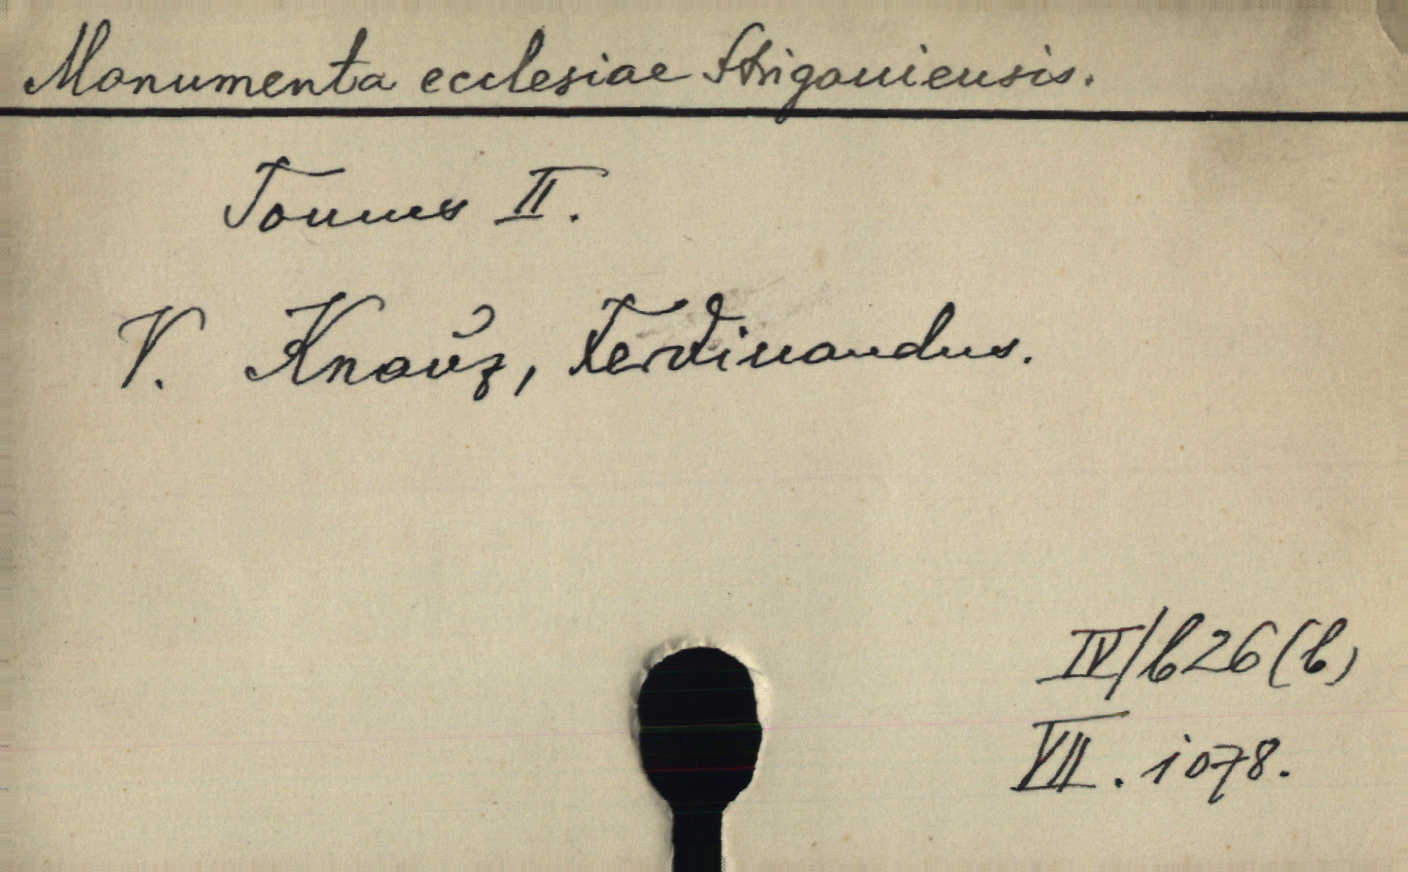 Monumenta ecclesiae Strigoniensis.
Tomus II.
V. Knaŭz, Ferdinandus.
IV/b26(b)
VII. 1078.